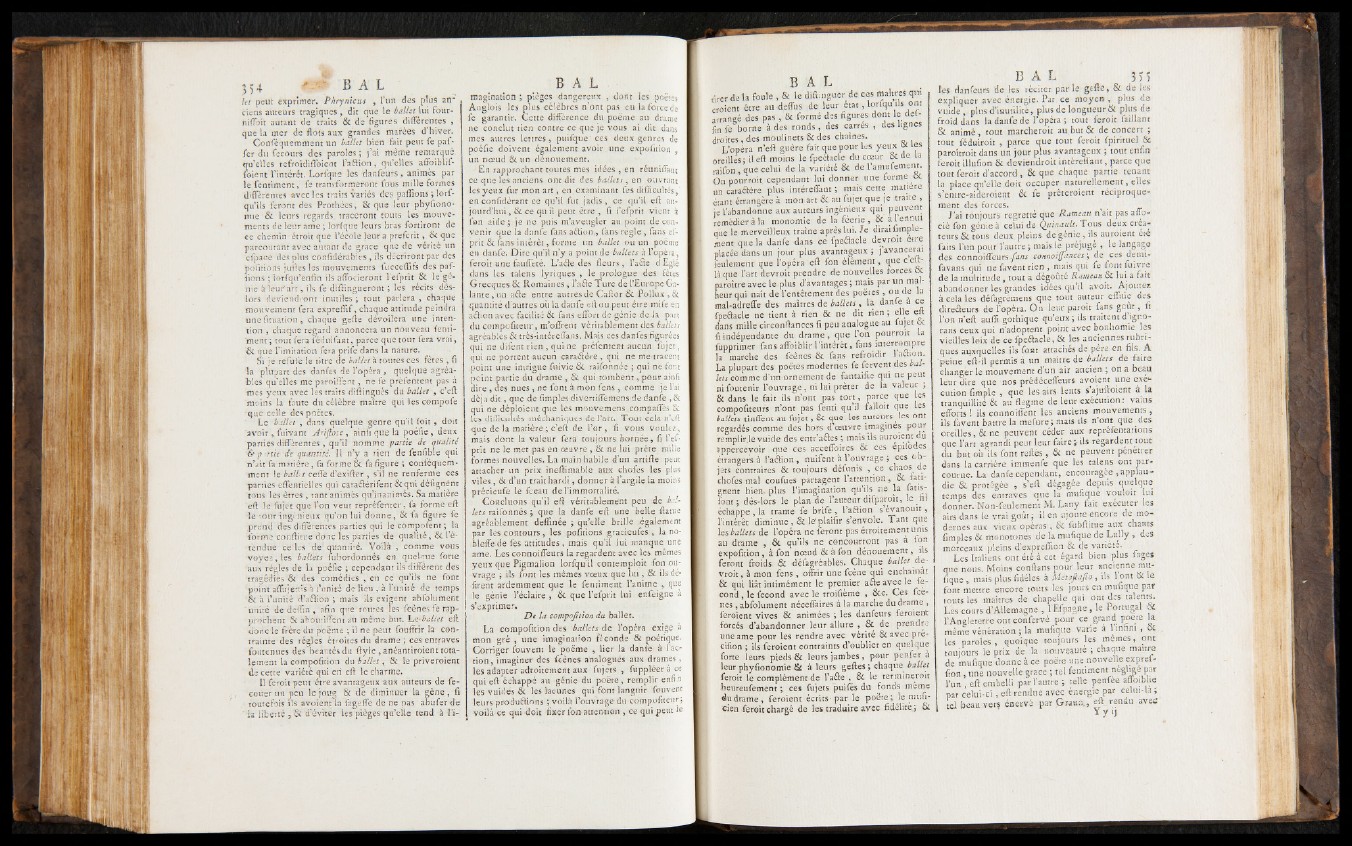 354 BAL
let peut exprimer. Phrynicus, l'un des plus an-
ciens auteurs tragiques, dit que le ballet lui four-
niſſoit autant de traits & de figures différentes,
que la mer de flots aux grandes marées d'hiver.
Conſéquemment un ballet bien fait peut ſe paſ-
ſer du ſecours des paroles; j'ai même remarqué
qu'elles refroidiſſoient l'action, qu'elles affoibliſ-
ſoient l'intérêt. Lorſque les danſeurs, animés par
le ſentiment, ſe transformeront ſous mille formes
différentes avec les traits variés des paſſions; lorſ-
qu'ils ſeront des Prothées, & que leur phyſiono-
mie & leurs regards traceront tous les mouve-
ments de leur ame; lorſque leurs bras ſortiront de
ce chemin étroit que l'école leur a preſcrit, & que
parcourant avec autant de grace que de vérité un
eſpace des plus conſidérables, ils décriront par des
poſitions juſtes les mouvements ſucceſſifs des paſ-
ſions; lorſqu'enfin ils aſſocieront l'eſprit & le gé-
nie à leur art, ils ſe diſtingueront; les récits dès-
lors deviendront inutiles; tout parlera, chaque
mouvement ſera expreſſif, chaque attitude peindra
une ſituation, chaque geſte dévoilera une inten-
tion, chaque regard annoncera un nouveau ſenti-
ment; tout ſera ſéduiſant, parce que tout ſera vrai,
& que l'imitation ſera priſe dans la nature.
Si je refuſe le titre de ballet à toutes ces fêtes, ſi
la plupart des danſes de l'opéra, quelque agréa-
bles qu'elles me paroiſſent, ne ſe préſentent pas à
mes yeux avec les traits diſtingués du ballet, c'eſt
moins la faute du célèbre maître qui les compoſe
que celle des poëtes.
Le ballet, dans quelque genre qu'il ſoit, doit
avoir, ſuivant Ariſtote, ainſi que la poéſie, deux
parties différentes, qu'il nomme partie de qualité
& partie de quantité. Il n'y a rien de ſenſible qui
n'ait ſa matière, ſa forme & ſa figure; conſéquem-
ment le ballet ceſſe d'exiſter, s'il ne renferme ces
parties eſſentielles qui caractériſent & qui déſignent
tous les êtres, tant animés qu'inanimés. Sa matière
eſt le ſujet que l'on veut repréſenter, ſa forme eſt
le tour ingénieux qu'on lui donne, & ſa figure ſe
prend des différentes parties qui le compoſent; la
forme conſtitue donc les parties de qualité, & l'é-
tendue celles de quantité. Voilà, comme vous
voyez, les ballets ſubordonnés en quelque ſorte
aux règles de la poéſie; cependant ils diffèrent des
tragédies & des comédies, en ce qu'ils ne ſont
point aſſujettis à l'unité de lieu, à l'unité de temps
& à l'unité d'action; mais ils exigent abſolument
unité de deſſin, afin que toutes les ſcènes ſe rap-
prochent & aboutiſſent au même but. Le ballet eſt
donc le frère du poëme; il ne peut ſouffrir la con-
trainte des règles étroites du drame; ces entraves
ſoutenues des beautés du ſtyle, anéantiroient tota-
lement la compoſition du ballet, & le priveroient
de cette variété qui en eſt le charme.
Il ſeroit peut être avantageux aux auteurs de ſe-
couer un peu le joug & de diminuer la gêne, ſi
toutefois ils avoient la ſageſſe de ne pas abuſer de
la liberté, & d'éviter les pièges qu'elle tend à l'i-
BAL
magination; pièges dangereux, dont les poëtes
Anglois les plus célèbres n'ont pas eu la force de
ſe garantir. Cette différence du poëme au drame
ne conclut rien contre ce que je vous ai dit dans
mes autres lettres, puiſque ces deux genres de
poéſie doivent également avoir une expoſition,
un nœud & un dénouement.
En rapprochant toutes mes idées, en réuniſſant
ce que les anciens ont dit des ballets, en ouvrant
les yeux ſur mon art, en examinant ſes difficultés,
en conſidérant ce qu'il fut jadis, ce qu'il eſt au-
jourd'hui, & ce qu'il peut être, ſi l'eſprit vient à
ſon aide; je ne puis m'aveugler au point de con-
venir que la danſe ſans action, ſans règle, ſans eſ-
prit & ſans intérêt, forme un ballet ou un poëme
en danſe. Dire qu'il n'y a point de ballets à l'opéra,
ſeroit une fauſſeté. L'acte des fleurs, l'acte d'Eglé
dans les talens lyriques, le prologue des fêtes
Grecques & Romaines, l'acte Turc de l'Europe Ga-
lante, un acte entre autres de Caſtor & Pollux, &
quantité d'autres où la danſe eſt ou peut être miſe en
action avec facilité & ſans effort de génie de la part
du compoſiteur, m'offrent véritablement des ballets
agréables & très-intéreſſans. Mais ces danſes figurées
qui ne diſent rien, qui ne préſentent aucun ſujet,
qui ne portent aucun caractère, qui ne me tracent
point une intrigue ſuivie & raiſonnée; qui ne font
point partie du drame, & qui tombent, pour ainſi
dire, des nues, ne ſont à mon ſens, comme je l'ai
déja dit, que de ſimples divertiſſemens de danſe, &
qui ne déploient que les mouvemens compaſſés &
les difficultés méchaniques de l'art. Tout cela n'eſt
que de la matière; c'eſt de l'or, ſi vous voulez,
mais dont la valeur ſera toujours bornée, ſi l'eſ-
prit ne le met pas en œuvre, & ne lui prête mille
formes nouvelles. La main habile d'un artiſte peut
attacher un prix ineſtimable aux choſes les plus
viles, & d'un trait hardi, donner à l'argile la moins
précieuſe le ſceau de l'immortalité.
Concluons qu'il eſt véritablement peu de bal-
lets raiſonnés; que la danſe eſt une belle ſtatue
agréablement deſſinée; qu'elle brille également
par les contours, les poſitions gracieuſes, la no-
bleſſe de ſes attitudes, mais qu'il lui manque une
ame. Les connoiſſeurs la regardent avec les mêmes
yeux que Pigmalion lorſqu'il contemploit ſon ou-
vrage; ils font les mêmes vœux que lui, & ils dé-
ſirent ardemment que le ſentiment l'anime, que
le génie l'éclaire, & que l'eſprit lui enſeigne à
s'exprimer.
De la compoſition du ballet.
La compoſition des ballets de l'opéra exige à
mon gré, une imagination féconde & poétique.
Corriger ſouvent le poëme, lier la danſe à l'ac-
tion, imaginer des ſcènes analogues aux drames,
les adapter adroitement aux ſujets, ſuppléer à ce
qui eſt échappé au génie du poëte, remplir enfin
les vuides & les lacunes qui font languir ſouvent
leurs productions; voilà l'ouvrage du compoſiteur;
voilà ce qui doit fixer ſon attention, ce qui peut le
BAL
tirer de la foule, & le diſtinguer de ces maîtres qui
croient être au deſſus de leur état, lorſqu'ils ont
arrangé des pas, & formé des figures dont le deſ-
ſin ſe borne à des ronds, des carrés, des lignes
droites, des moulinets & des chaînes.
L'opéra n'eſt guère fait que pour les yeux & les
oreilles; il eſt moins le ſpectacle du cœur & de la
raiſon, que celui de la variété & de l'amuſement.
On pourroit cependant lui donner une forme &
un caractère plus intéreſſant; mais cette matière
étant étrangère à mon art & au ſujet que je traite,
je l'abandonne aux auteurs ingénieux qui peuvent
remédier à la monomie de la féerie, & à l'ennui
que le merveilleux traîne après lui. Je dirai ſimple-
ment que la danſe dans ce ſpectacle devroit être
placée dans un jour plus avantageux; j'avancerai
ſeulement que l'opéra eſt ſon élément, que c'eſt-
là que l'art devroit prendre de nouvelles forces &
paroître avec le plus d'avantages; mais par un mal-
heur qui naît de l'entêtement des poëtes, ou de la
mal-adreſſe des maîtres de ballets, la danſe à ce
ſpectacle ne tient à rien & ne dit rien; elle eſt
dans mille circonſtances ſi peu analogue au ſujet &
ſi indépendante du drame, que l'on pourroit la
ſupprimer ſans affoiblir l'intérêt, ſans interrompre
la marche des ſcènes & ſans refroidir l'action.
La plupart des poëtes modernes ſe ſervent des bal-
lets comme d'un ornement de fantaiſie qui ne peut
ni ſoutenir l'ouvrage, ni lui prêter de la valeur;
& dans le fait ils n'ont pas tort, parce que les
compoſiteurs n'ont pas ſenti qu'il falloit que les
ballets tinſſent au ſujet, & que les auteurs les ont
regardés comme des hors d'œuvre imaginés pour
remplir le vuide des entr'actes; mais ils auroient dû
appercevoir que ces acceſſoires & ces épiſodes
étrangers à l'action, nuiſent à l'ouvrage; ces ob-
jets contraires & toujours déſunis, ce chaos de
choſes mal couſues partagent l'attention, & fati-
guent bien plus l'imagination qu'ils ne la ſatis-
font; dès-lors le plan de l'auteur diſparoît, le fil
échappe, la trame ſe briſe, l'action s'évanouit,
l'intérêt diminue, & le plaiſir s'envole. Tant que
les ballets de l'opéra ne ſeront pas étroitement unis
au drame, & qu'ils ne concourront pas à ſon
expoſition, à ſon nœud & à ſon dénouement, ils
ſeront froids & déſagréables. Chaque ballet de-
vroit, à mon ſens, offrir une ſcène qui enchaînât
& qui liât intimément le premier acte avec le ſe-
cond, le ſecond avec le troiſième, &c. Ces ſcè-
nes, abſolument néceſſaires à la marche du drame,
ſeroient vives & animées; les danſeurs ſeroient
forcés d'abandonner leur allure, & de prendre
une ame pour les rendre avec vérité & avec pré-
ciſion; ils ſeroient contraints d'oublier en quelque
ſorte leurs pieds & leurs jambes, pour penſer à
leur phyſionomie & à leurs geſtes; chaque ballet
ſeroit le complément de l'acte, & le termineroit
heureuſement; ces ſujets puiſés du fonds même
du drame, ſeroient écrits par le poëte; le muſi-
cien ſeroit chargé de les traduire avec fidélité; &
BAL 355
les danſeurs de les réciter par le geſte, & de les
expliquer avec énergie. Par ce moyen, plus de
vuide, plus d'inutilité, plus de longueur & plus de
froid dans la danſe de l'opéra; tout ſeroit ſaillant
& animé, tout marcheroit au but & de concert;
tout ſéduiroit, parce que tout ſeroit ſpirituel &
paroîtroit dans un jour plus avantageux; tout enfin
feroit illuſion & deviendroit intéreſſant, parce que
tout ſeroit d'accord, & que chaque partie tenant
la place qu'elle doit occuper naturellement, elles
s'entre-aideroient & ſe prêteroient réciproque-
ment des forces.
J'ai toujours regretté que Rameau n'ait pas aſſo-
cié ſon génie à celui de Quinault. Tous deux créa-
teurs & tous deux pleins de génie, ils auroient été
faits l'un pour l'autre; mais le préjugé, le langage
des connoiſſeurs ſans connoiſſances; de ces demi-
ſavans qui ne ſavent rien, mais qui ſe font ſuivre
de la multitude, tout a dégoûté Rameau & lui a fait
abandonner les grandes idées qu'il avoit. Ajoutez
à cela les déſagrémens que tout auteur eſſuie des
directeurs de l'opéra. On leur paroît ſans goût, ſi
l'on n'eſt auſſi gothique qu'eux; ils traitent d'igno-
rans ceux qui n'adoptent point avec bonhomie les
vieilles loix de ce ſpectacle, & les anciennes rubri-
ques auxquelles ils ſont attachés de père en fils. A
peine eſt-il permis à un maître de ballets de faire
changer le mouvement d'un air ancien; on a beau
leur dire que nos prédéceſſeurs avoient une exé-
cution ſimple, que les airs lents s'ajuſtoient à la
tranquillité & au flegme de leur exécution: vains
efforts! ils connoiſſent les anciens mouvements,
ils ſavent battre la meſure; mais ils n'ont que des
oreilles, & ne peuvent céder aux repréſentations
que l'art agrandi peut leur faire; ils regardent tout
du but où ils ſont reſtés, & ne peuvent pénétrer
dans la carrière immenſe que les talens ont par-
courue. La danſe cependant, encouragée, applau-
die & protégée, s'eſt dégagée depuis quelque
temps des entraves que la muſique vouloit lui
donner. Non-ſeulement M. Lany fait exécuter les
airs dans le vrai goût; il en ajoute encore de mo-
dernes aux vieux opéras, & ſubſtitue aux chants
ſimples & monotones de la muſique de Lully, des
morceaux pleins d'expreſſion & de variété.
Les Italiens ont été à cet égard bien plus ſages
que nous. Moins conſtans pour leur ancienne mu-
ſique, mais plus fidèles à Métaſtaſio, ils l'ont & le
font mettre encore tous les jours en muſique par
tous les maîtres de chapelle qui ont des talents.
Les cours d'Allemagne, l'Eſpagne, le Portugal &
l'Angleterre ont conſervé pour ce grand poëte la
même vénération; la muſique varie à l'infini, &
les paroles, quoique toujours les mêmes, ont
toujours le prix de la nouveauté; chaque maître
de muſique donne à ce poëte une nouvelle expreſ-
ſion, une nouvelle grace; tel ſentiment négligé par
l'un, eſt embelli par l'autre; telle penſée affoiblie
par celui-ci, eſt rendue avec énergie par celui-là;
tel beau vers énervé par Graun, eſt rendu avec
Y y ij